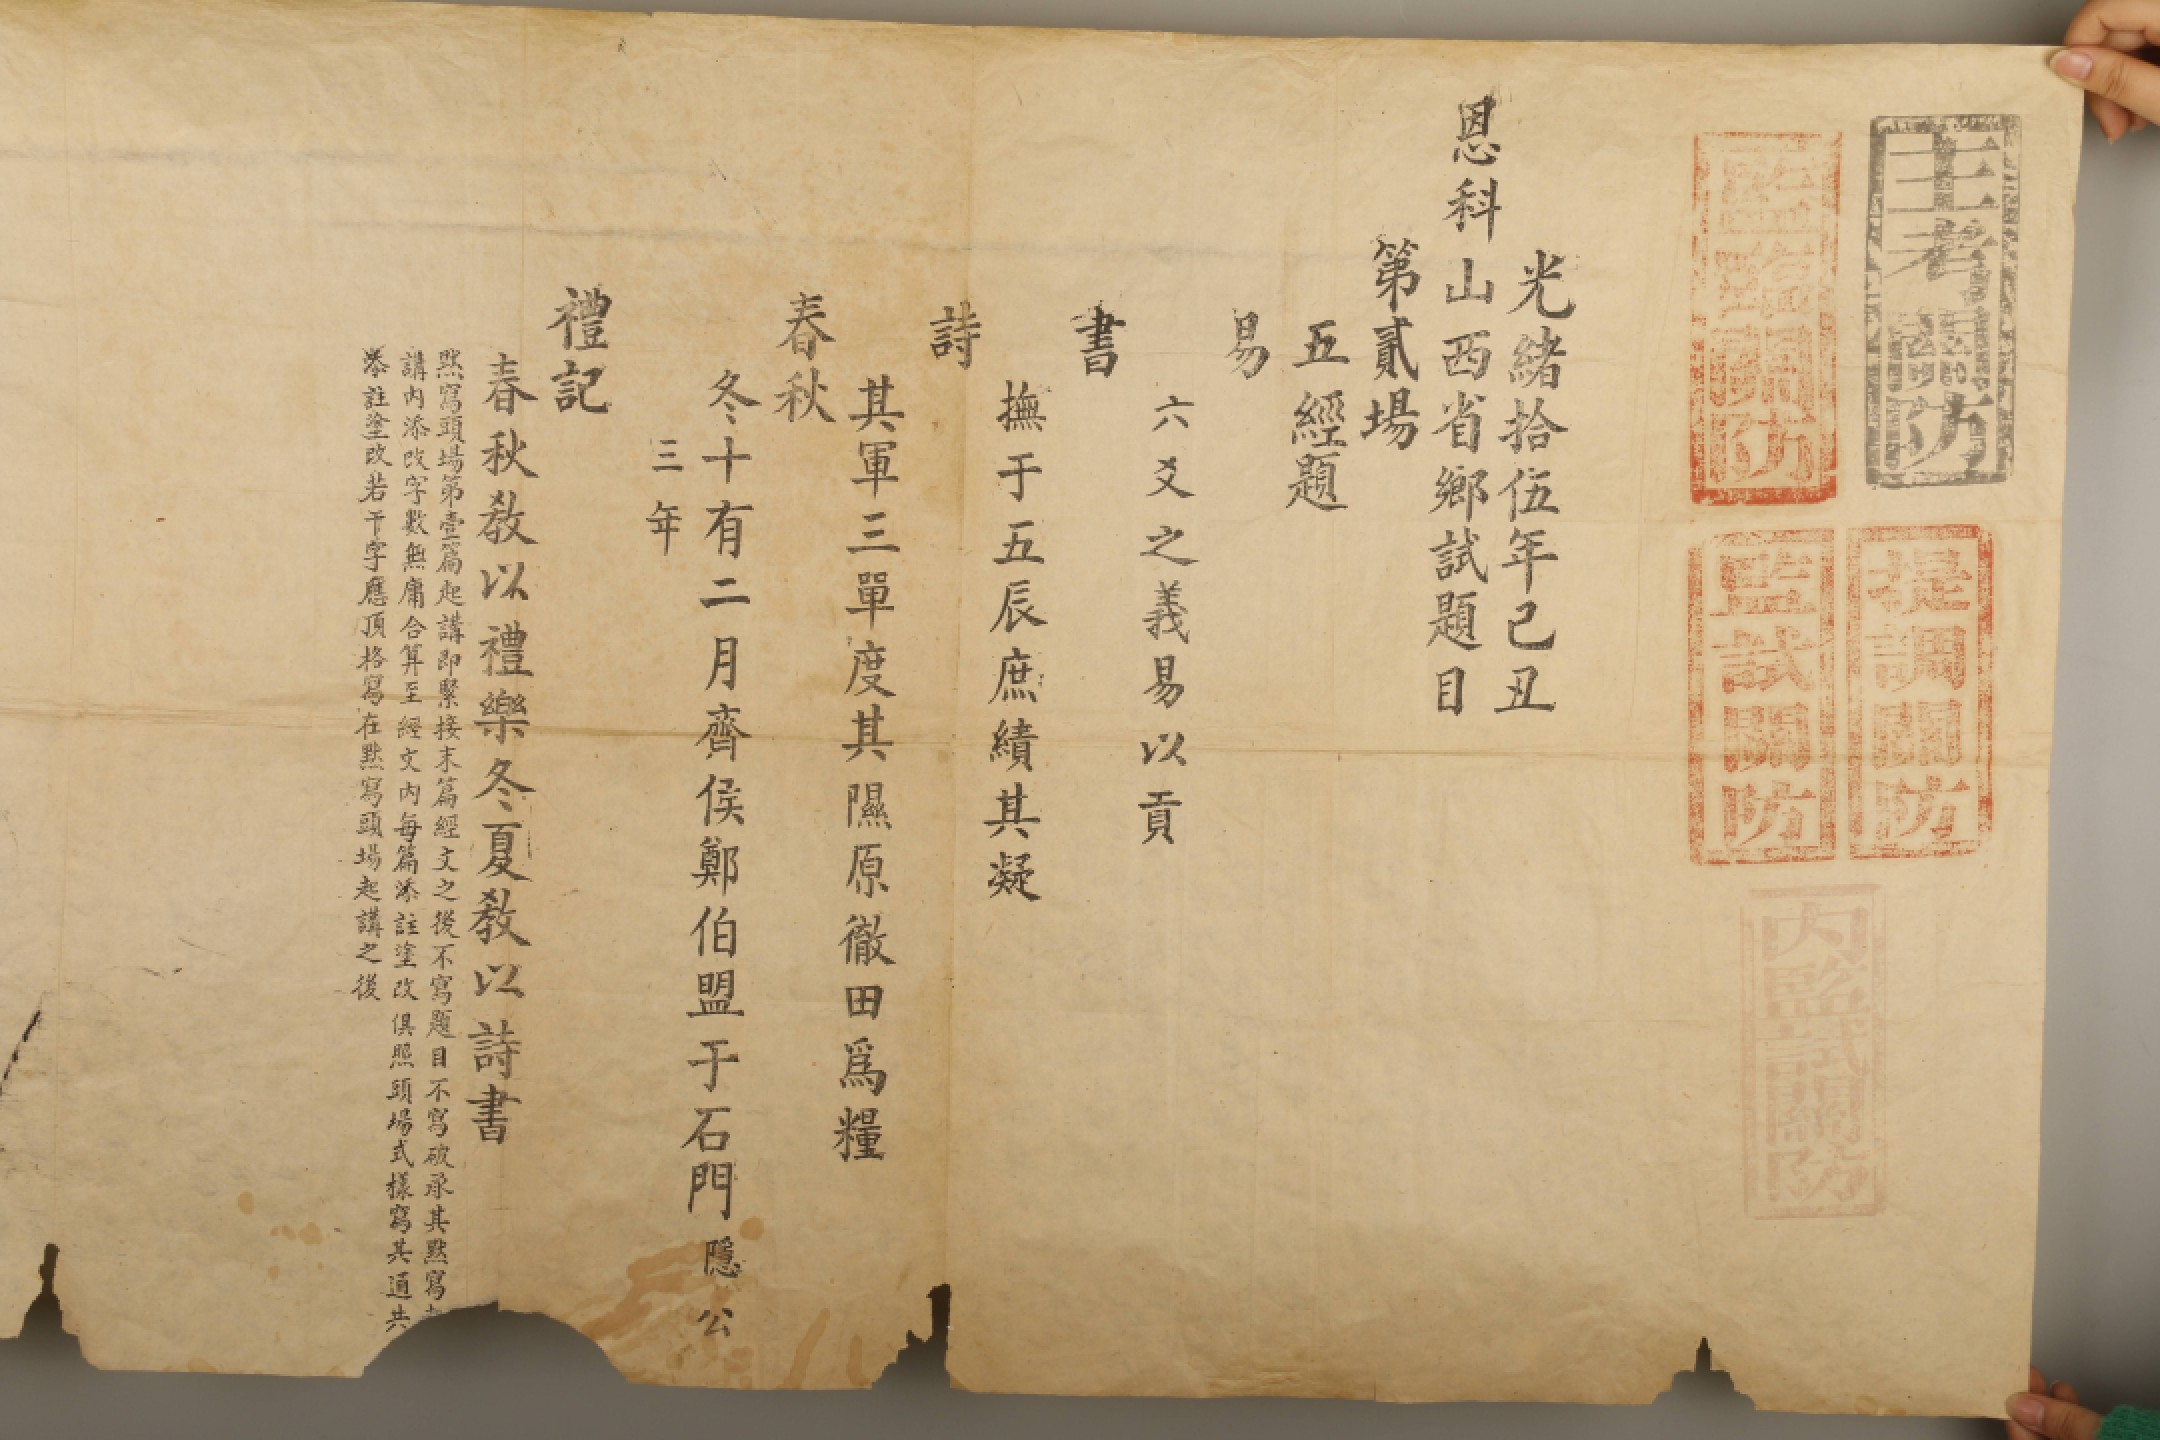 主考關防
提調關防
監臨關防
監試關防
內監試關防
光緒拾伍年己丑
恩科山西省鄉試題目
第貳場
五經題
易
六爻之義易以貢
書
撫于五辰庶績其凝
詩
其軍三單度其隰原徹田爲糧
春秋
冬十有二月齊侯鄭伯盟于石門隱公
三年
禮記
春秋教以禮樂冬夏教以詩書
默寫頭場第壹篇起講即緊接末篇經文之後不寫題目不寫破承其默寫
講內添改字數無庸合算至經文內每篇添註塗改俱照頭場式樣寫其通共
添註塗改若干字應頂格寫在默寫頭場起講之後